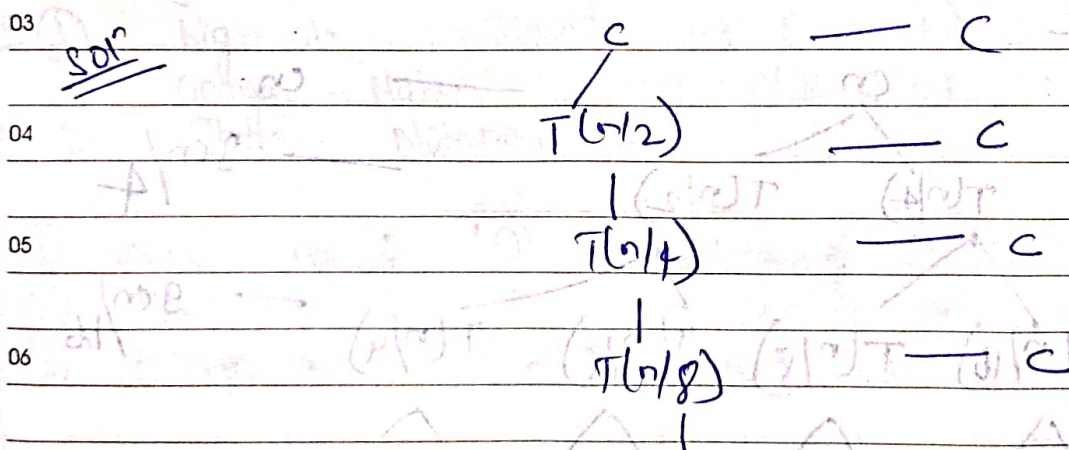 03
Solⁿ C — C
04 T(n/2) — C
05 T(n/4) — C
06 T(n/8) — C